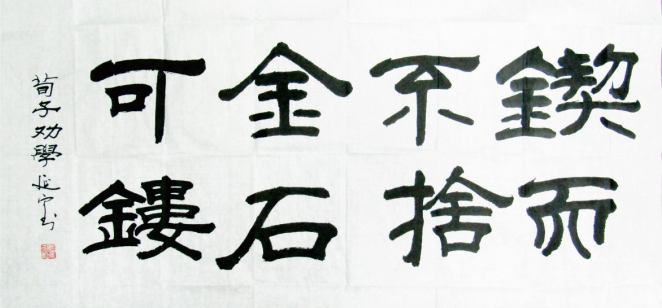 鍥而
不捨
金石
可鏤
荀子劝學延寧书